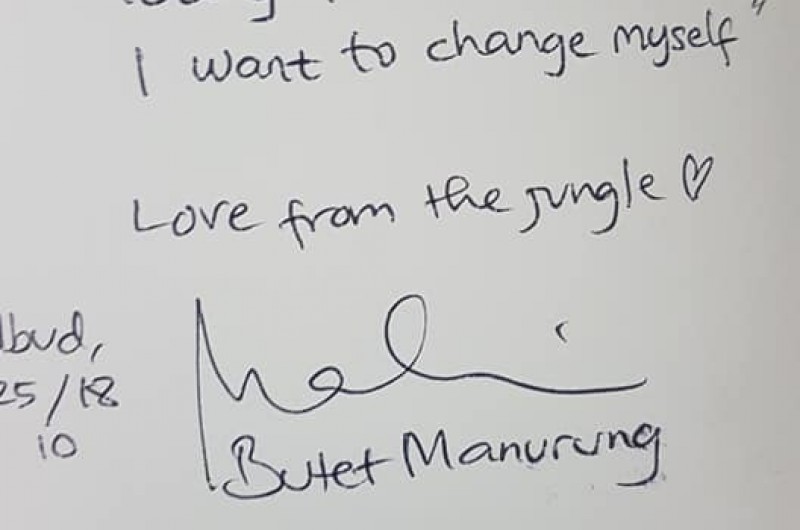 I want to change myself"
Love from the jungle ♡
Ubud,
25/18
10
Butet Manurung